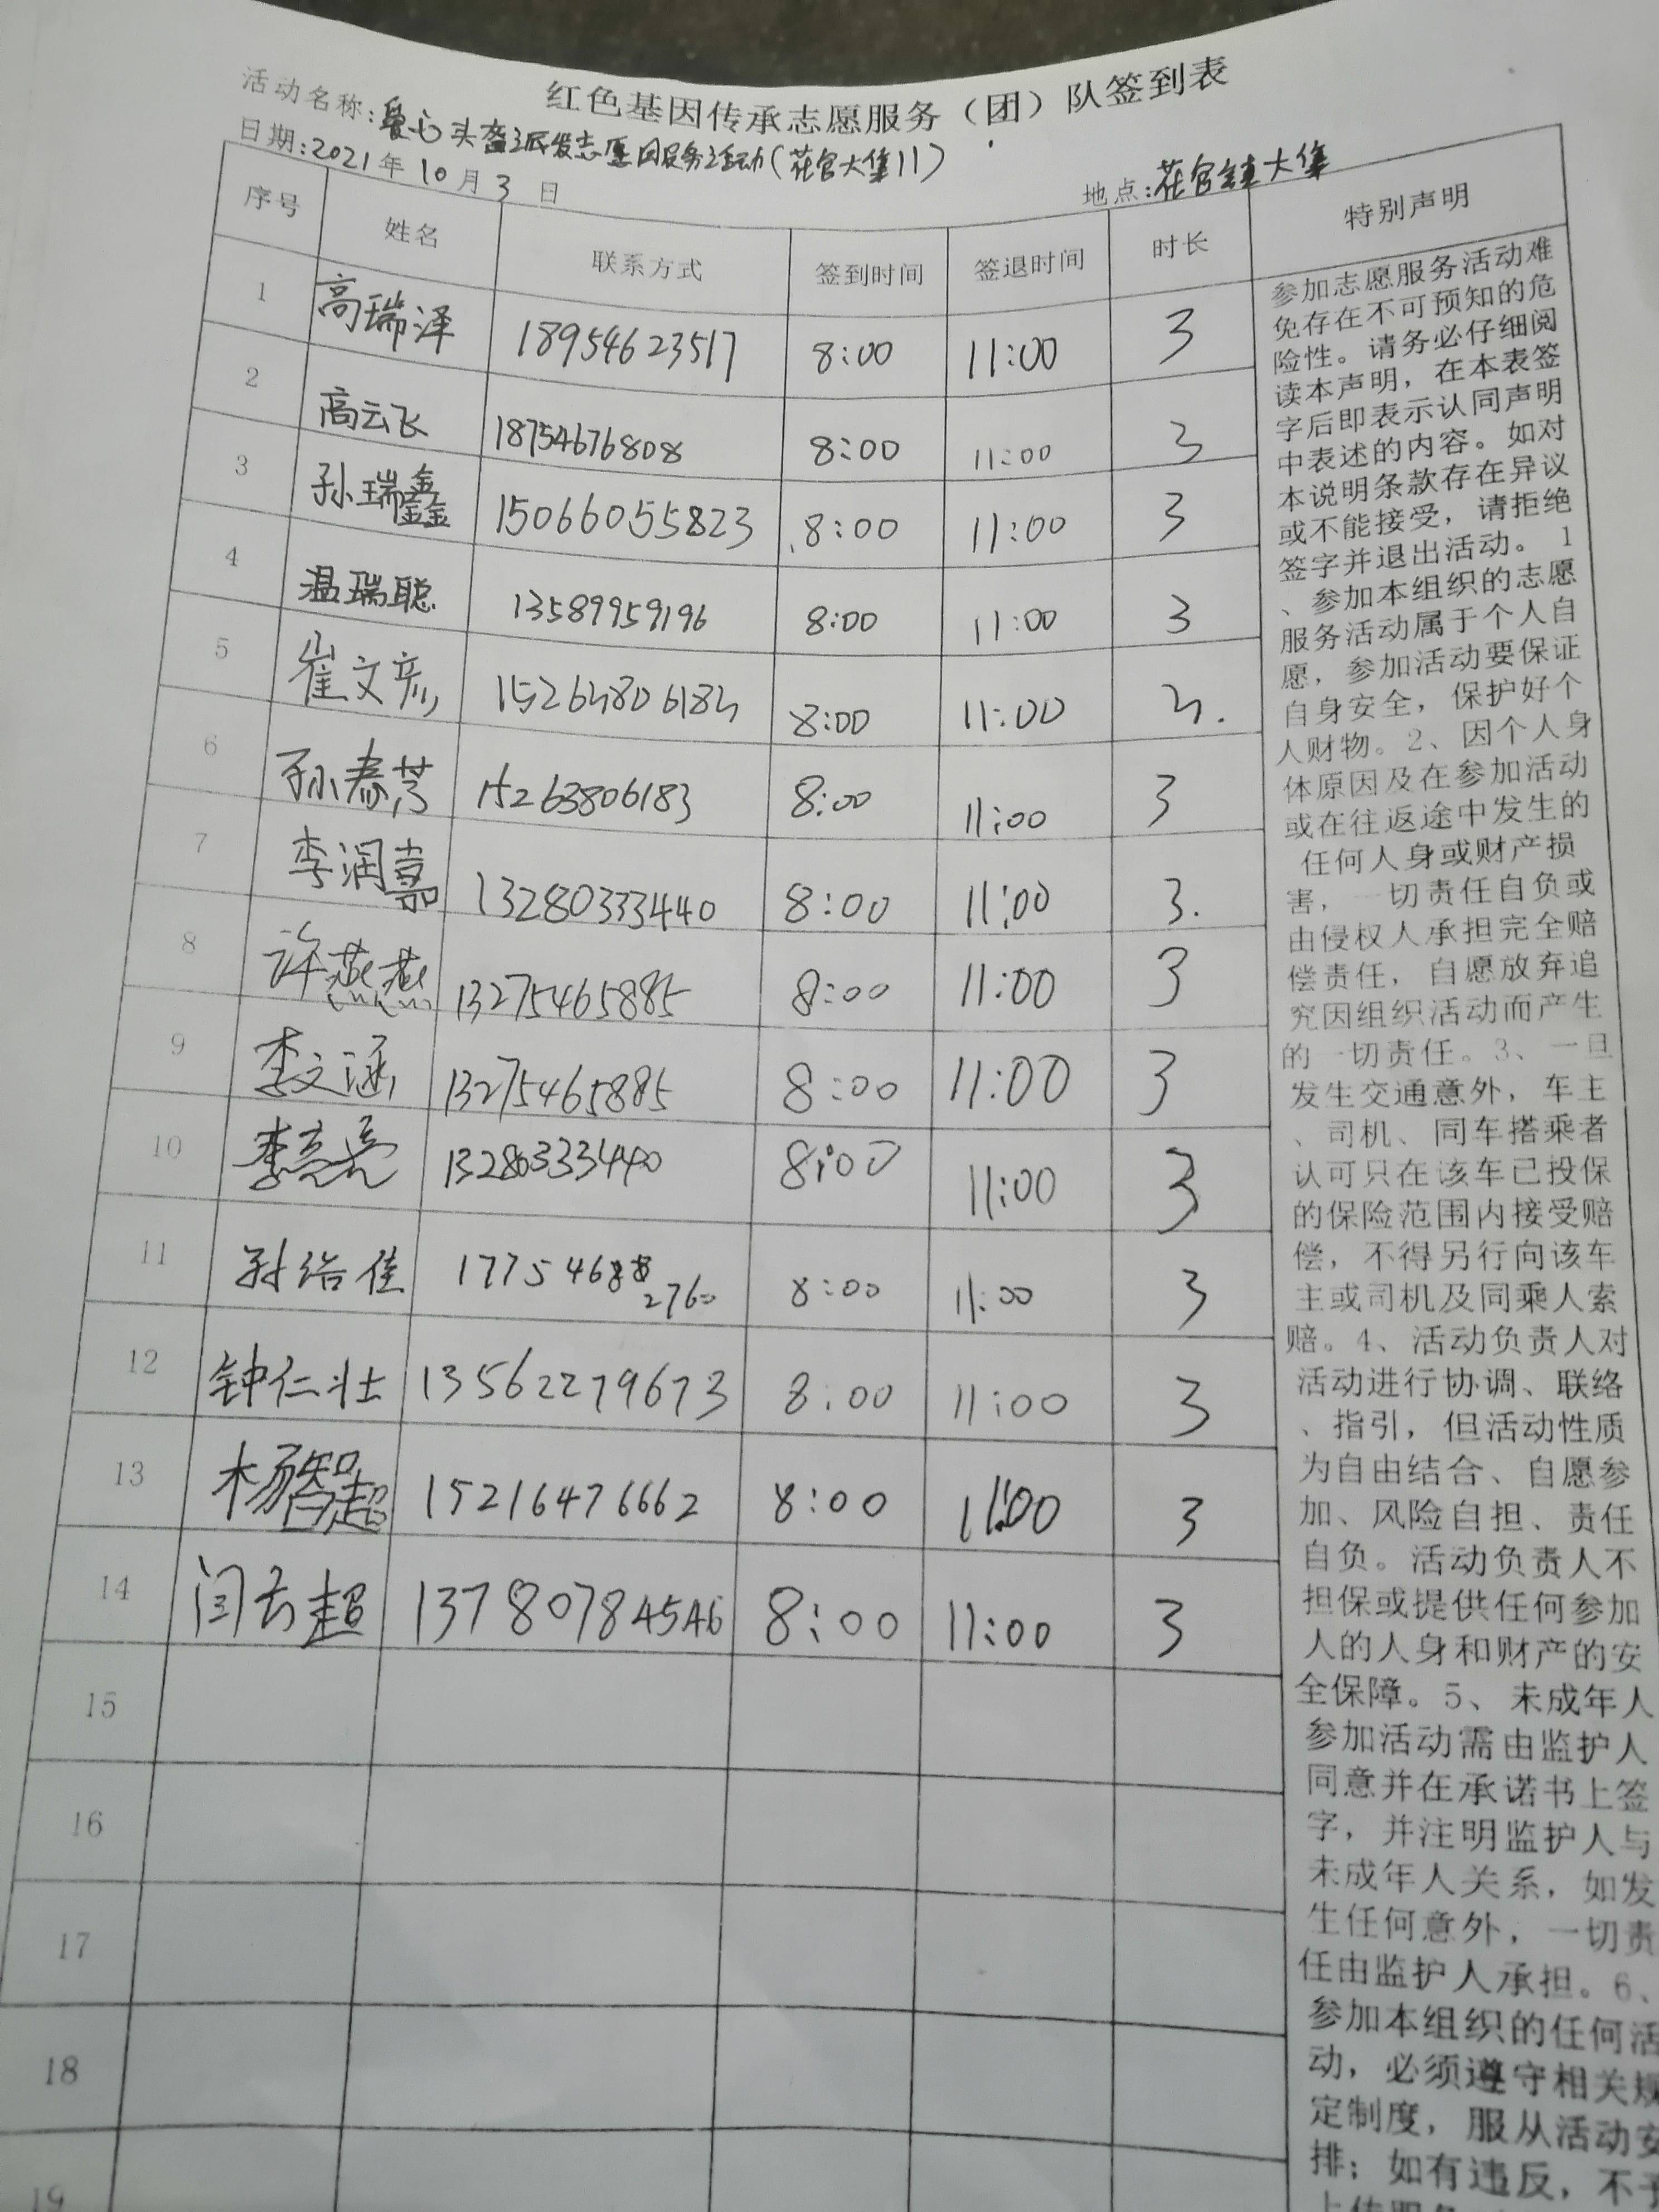 红色基因传承志愿服务（团）队签到表
活动名称:爱心头盔派发志愿服务活动(花官大集11)
日期:2021年10月3日
地点:花官镇大集
序号 姓名 联系方式 签到时间 签退时间 时长 特别声明
1 高瑞泽 18954623517 8:00 11:00 3
2 高云飞 18754676808 8:00 11:00 3
3 孙瑞鑫 15066055823 8:00 11:00 3
4 温瑞聪 13589959196 8:00 11:00 3
5 崔文彦 8:00 11:00
6 孙春芳 15263806183 8:00 11:00 3
7 李润嘉 13280333440 8:00 11:00 3.
8 许燕燕 13275465885 8:00 11:00 3
9 李文涵 13275465885 8:00 11:00 3
10 李亮亮 13280333440 8:00 11:00 3
11 8:00 11:00 3
12 钟仁壮 13562279673 8:00 11:00 3
13 杨智超 15216476662 8:00 11:00 3
14 闫云超 13780784546 8:00 11:00 3
15
16
17
18
19
参加志愿服务活动难
免存在不可预知的危
险性。请务必仔细阅
读本声明，在本表签
字后即表示认同声明
中表述的内容。如对
本说明条款存在异议
或不能接受，请拒绝
签字并退出活动。1
、参加本组织的志愿
服务活动属于个人自
愿，参加活动要保证
自身安全，保护好个
人财物。2、因个人身
体原因及在参加活动
或在往返途中发生的
任何人身或财产损
害，一切责任自负或
由侵权人承担完全赔
偿责任，自愿放弃追
究因组织活动而产生
的一切责任。3、一旦
发生交通意外，车主
、司机、同车搭乘者
认可只在该车已投保
的保险范围内接受赔
偿，不得另行向该车
主或司机及同乘人索
赔。4、活动负责人对
活动进行协调、联络
、指引，但活动性质
为自由结合、自愿参
加、风险自担、责任
自负。活动负责人不
担保或提供任何参加
人的人身和财产的安
全保障。5、未成年人
参加活动需由监护人
同意并在承诺书上签
字，并注明监护人与
未成年人关系，如发
生任何意外，一切责
任由监护人承担。6、
参加本组织的任何活
动，必须遵守相关规
定制度，服从活动安
排；如有违反，不予